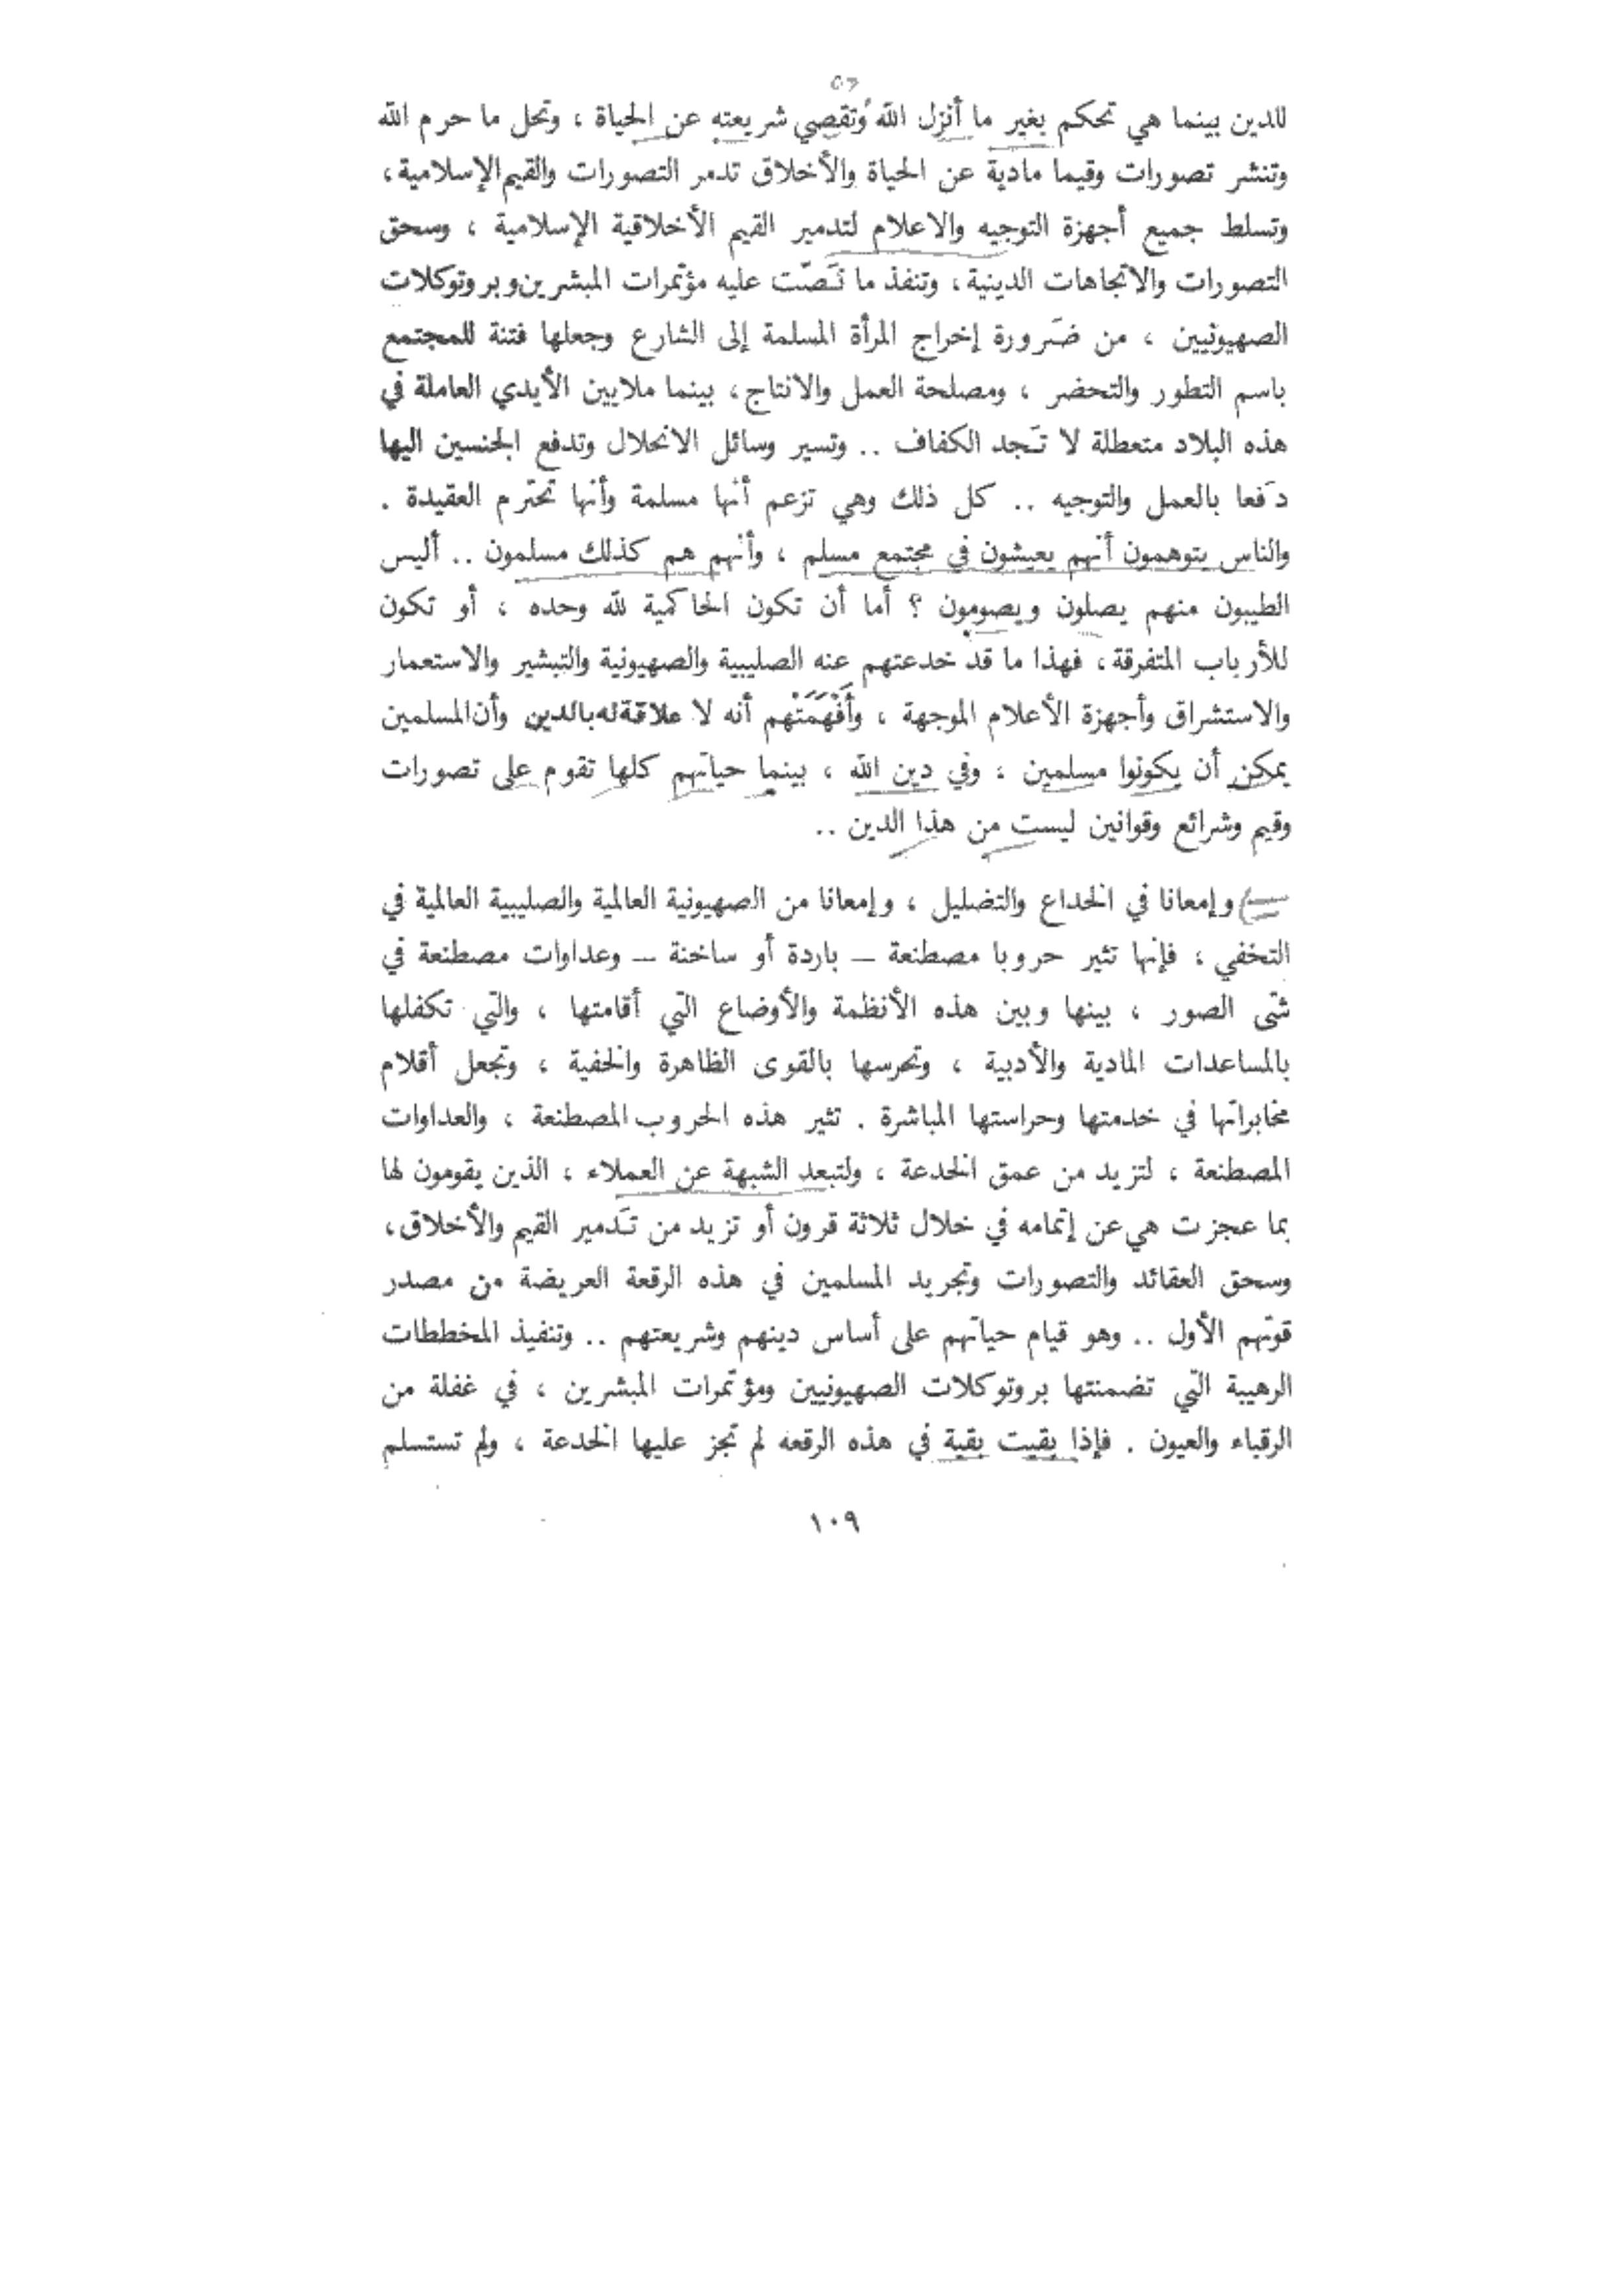 للدين بينما هي تحكم بغير ما أنزل الله وتقصي شريعته عن الحياة ، وتحل ما حرم الله
وتنشر تصورات وقيما مادية عن الحياة والأخلاق تدمر التصورات والقيم الإسلامية ،
وتسلط جميع أجهزة التوجيه والاعلام لتدمير القيم الأخلاقية الإسلامية ، وسحق
التصورات والاتجاهات الدينية ، وتنفذ ما نَصّت عليه مؤتمرات المبشرين وبروتوكلات
الصهيونيين ، من ضَرورة إخراج المرأة المسلمة إلى الشارع وجعلها فتنة للمجتمع
باسم التطور والتحضر ، ومصلحة العمل والانتاج ، بينما ملايين الأيدي العاملة في
هذه البلاد متعطلة لا تَجد الكفاف .. وتسير وسائل الانحلال وتدفع الجنسين اليها
دَفعا بالعمل والتوجيه .. كل ذلك وهي تزعم أنها مسلمة وأنها تحترم العقيدة .
والناس يتوهمون أنهم يعيشون في مجتمع مسلم ، وأنهم هم كذلك مسلمون .. أليس
الطيبون منهم يصلون ويصومون ؟ أما أن تكون الحاكمية لله وحده ، أو تكون
للأرباب المتفرقة ، فهذا ما قد خدعتهم عنه الصليبية والصهيونية والتبشير والاستعمار
والاستشراق وأجهزة الأعلام الموجهة ، وأَفْهَمَتْهم أنه لا علاقة له بالدين وأن المسلمين
يمكن أن يكونوا مسلمين ، وفي دين الله ، بينما حياتهم كلها تقوم على تصورات
وقيم وشرائع وقوانين ليست من هذا الدين ..
وإمعانا في الخداع والتضليل ، وإمعانا من الصهيونية العالمية والصليبية العالمية في
التخفي ، فإنها تثير حروبا مصطنعة – باردة أو ساخنة – وعداوات مصطنعة في
شتى الصور ، بينها وبين هذه الأنظمة والأوضاع التي أقامتها ، والتي تكفلها
بالمساعدات المادية والأدبية ، وتحرسها بالقوى الظاهرة والخفية ، وتجعل أقلام
مخابراتها في خدمتها وحراستها المباشرة . تثير هذه الحروب المصطنعة ، والعداوات
المصطنعة ، لتزيد من عمق الخدعة ، ولتبعد الشبهة عن العملاء ، الذين يقومون لها
بما عجزت هي عن إتمامه في خلال ثلاثة قرون أو تزيد من تَدمير القيم والأخلاق ،
وسحق العقائد والتصورات وتجريد المسلمين في هذه الرقعة العريضة من مصدر
قوتهم الأول .. وهو قيام حياتهم على أساس دينهم وشريعتهم .. وتنفيذ المخططات
الرهيبة التي تضمنتها بروتوكلات الصهيونيين ومؤتمرات المبشرين ، في غفلة من
الرقباء والعيون . فإذا بقيت بقية في هذه الرقعه لم تجز عليها الخدعة ، ولم تستسلم
١٠٩